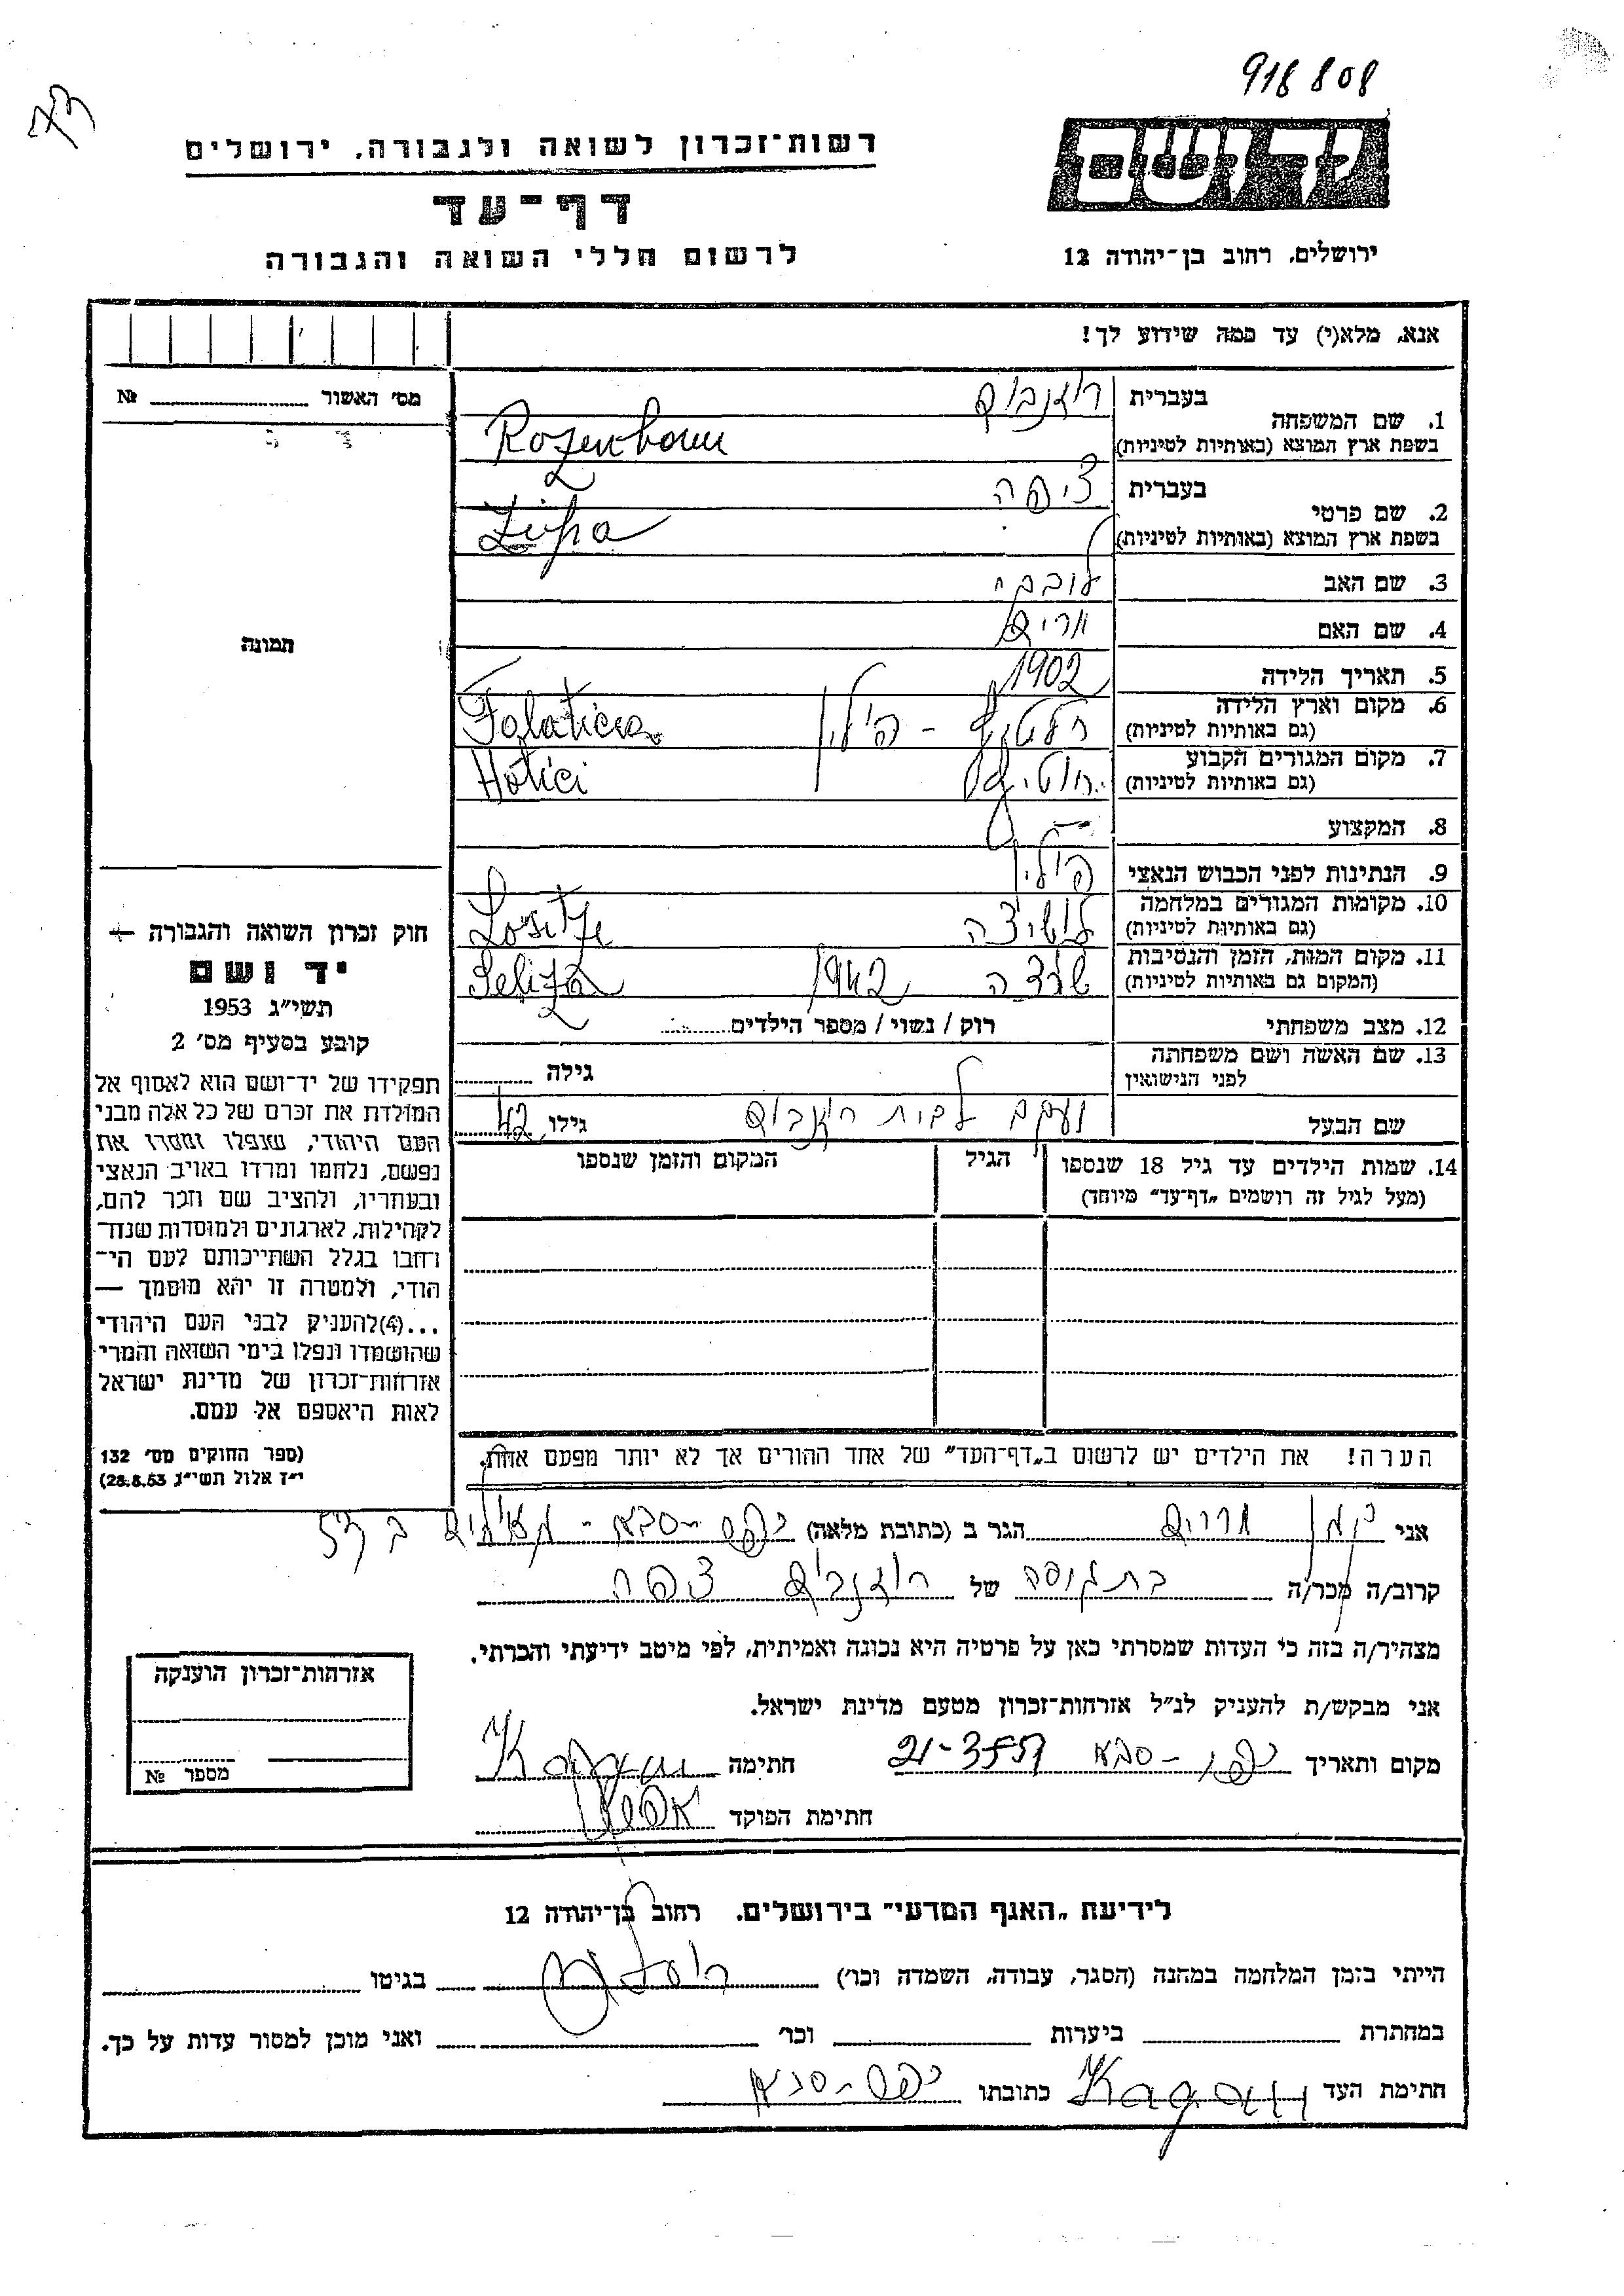 918 808
יד ושם
רשות־זכרון לשואה ולגבורה, ירושלים
דף־עד
לרשום חללי השואה והגבורה
ירושלים, רחוב בן־יהודה 12
אנא, מלא(י) עד כמה שידוע לך!
מס׳ האשור № 
1. שם המשפחה
בעברית רוזנבוים
בשפת ארץ המוצא (באותיות לטיניות) Rozenboum
2. שם פרטי
בעברית ציפה
בשפת ארץ המוצא (באותיות לטיניות) Zipa
3. שם האב
4. שם האם מרים
5. תאריך הלידה 1902
6. מקום וארץ הלידה
(גם באותיות לטיניות) פולין
7. מקום המגורים הקבוע
(גם באותיות לטיניות) Hotici
8. המקצוע —
9. הנתינות לפני הכבוש הנאצי פולין
10. מקומות המגורים במלחמה
(גם באותיות לטיניות) לושיצה
11. מקום המות, הזמן והנסיבות
(המקום גם באותיות לטיניות) 1942
12. מצב משפחתי רוק / נשוי / מספר הילדים
13. שם האשה ושם משפחתה
לפני הנישואין גילה
שם הבעל יעקב לבית רוזנבוים גילו 42
14. שמות הילדים עד גיל 18 שנספו
(מעל לגיל זה רושמים „דף־עד״ מיוחד)
הגיל
המקום והזמן שנספו
תמונה
חוק זכרון השואה והגבורה —
יד ושם
תשי״ג 1953
קובע בסעיף מס׳ 2
תפקידו של יד־ושם הוא לאסוף אל
המולדת את זכרם של כל אלה מבני
העם היהודי, שנפלו ומסרו את
נפשם, נלחמו ומרדו באויב הנאצי
ובעוזריו, ולהציב שם וזכר להם,
לקהילות, לארגונים ולמוסדות שנח־
רבו בגלל השתייכותם לעם הי־
הודי, ולמטרה זו יהא מוסמך —
...(4)להעניק לבני העם היהודי
שהושמדו ונפלו בימי השואה והמרי
אזרחות־זכרון של מדינת ישראל
לאות היאספם אל עמם.
(ספר החוקים מס׳ 132
י״ז אלול תשי״ג 28.8.53)
הערה! את הילדים יש לרשום ב„דף־העד״ של אחד ההורים אך לא יותר מפעם אחת.
אני מרים הגר ב (כתובת מלאה) כפר־סבא -
קרוב/ה מכר/ה בת גיסה של רוזנבוים ציפה
מצהיר/ה בזה כי העדות שמסרתי כאן על פרטיה היא נכונה ואמיתית, לפי מיטב ידיעתי והכרתי.
אני מבקש/ת להעניק לנ״ל אזרחות־זכרון מטעם מדינת ישראל.
מקום ותאריך כפר־סבא חתימה Kagan
חתימת הפוקד
אזרחות־זכרון הוענקה
מספר №
לידיעת „האגף המדעי״ בירושלים. רחוב בן־יהודה 12
הייתי בזמן המלחמה במחנה (הסגר, עבודה, השמדה וכו׳) בגיטו
במחתרת ביערות וכו׳ ואני מוכן למסור עדות על כך.
חתימת העד Kagan כתובתו כפר־סבא